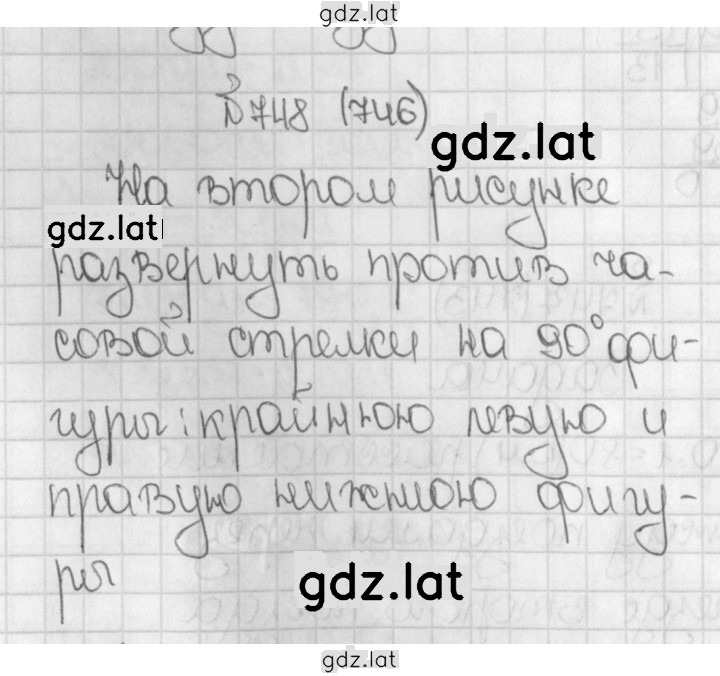 gdz.lat
№748 (746)
gdz.lat
На втором рисунке
gdz.lat
развернуть против ча-
совой стрелки на 90° фи-
гуры: крайнюю левую и
правую нижнюю фигу-
ры
gdz.lat
gdz.lat